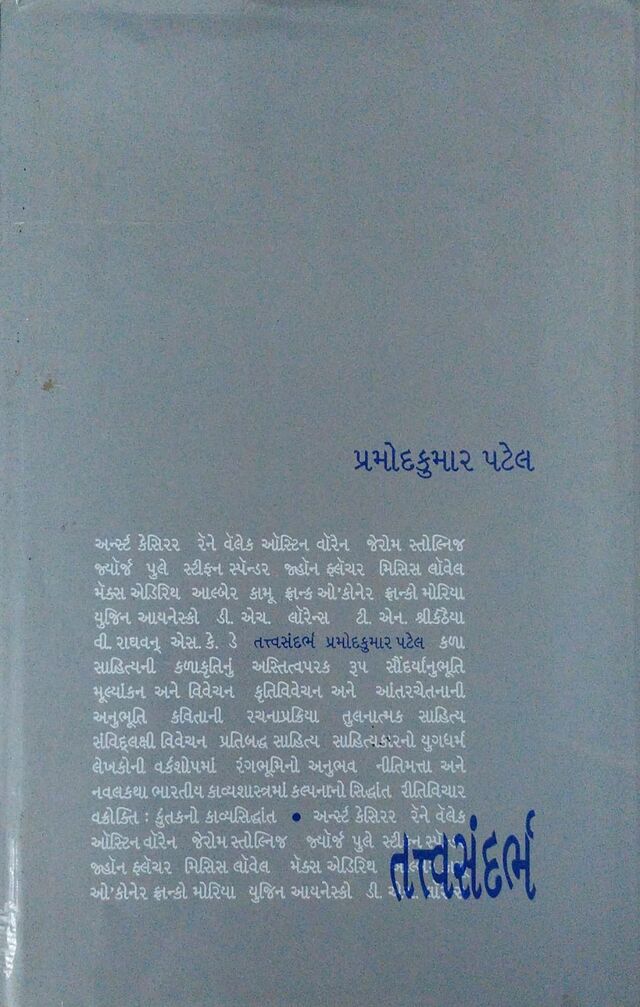 પ્રમોદકુમાર પટેલ
અર્ન્સ્ટ કેસિરર રૅને વૅલેક ઑસ્ટિન વૉરૅન જેરોમ સ્તોલ્નિજ
જ્યૉર્જ પુલે સ્ટીફન સ્પૅન્ડર જ્હૉન ફ્લૅચર મિસિસ લૉવેલ
મૅક્સ એડિરિથ આલ્બેર કામૂ ફ્રાન્ક ઓ'કોનેર ફ્રાન્કો મોરિયા
યુજિન આયનેસ્કો ડી. એચ. લૉરેન્સ ટી. એન. શ્રીકંઠૈયા
વી. રાઘવન્ એસ. કે. ડે તત્ત્વસંદર્ભ પ્રમોદકુમાર પટેલ કળા
સાહિત્યની કળાકૃતિનું અસ્તિત્વપરક રૂપ સૌંદર્યાનુભૂતિ
મૂલ્યાંકન અને વિવેચન કૃતિવિવેચન અને આંતરચેતનાની
અનુભૂતિ કવિતાની રચનાપ્રક્રિયા તુલનાત્મક સાહિત્ય
સંવિદ્લક્ષી વિવેચન પ્રતિબદ્ધ સાહિત્ય સાહિત્યકારનો યુગધર્મ
લેખકોની વર્કશોપમાં રંગભૂમિનો અનુભવ નીતિમત્તા અને
નવલકથા ભારતીય કાવ્યશાસ્ત્રમાં કલ્પનાનો સિદ્ધાંત રીતિવિચાર
વક્રોક્તિ : કુંતકનો કાવ્યસિદ્ધાંત • અર્ન્સ્ટ કેસિરર રૅને વૅલેક
ઑસ્ટિન વૉરૅન જેરોમ સ્તોલ્નિજ જ્યૉર્જ પુલે સ્ટીફન
જ્હૉન ફ્લૅચર મિસિસ લૉવેલ મૅક્સ એડિરિથ
ઓ'કોનેર ફ્રાન્કો મોરિયા યુજિન આયનેસ્કો ડી.
તત્ત્વસંદર્ભ